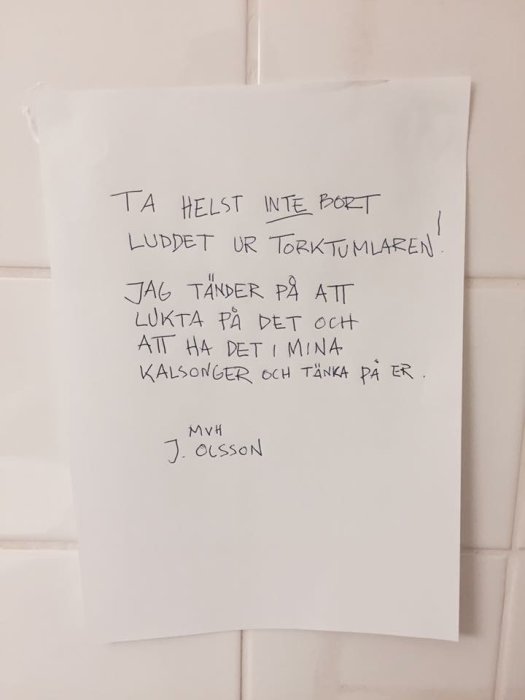 TA HELST INTE BORT
LUDDET UR TORKTUMLAREN!
JAG TÄNDER PÅ ATT
LUKTA PÅ DET OCH
ATT HA DET I MINA
KALSONGER OCH TÄNKA PÅ ER.
MVH
J. OLSSON